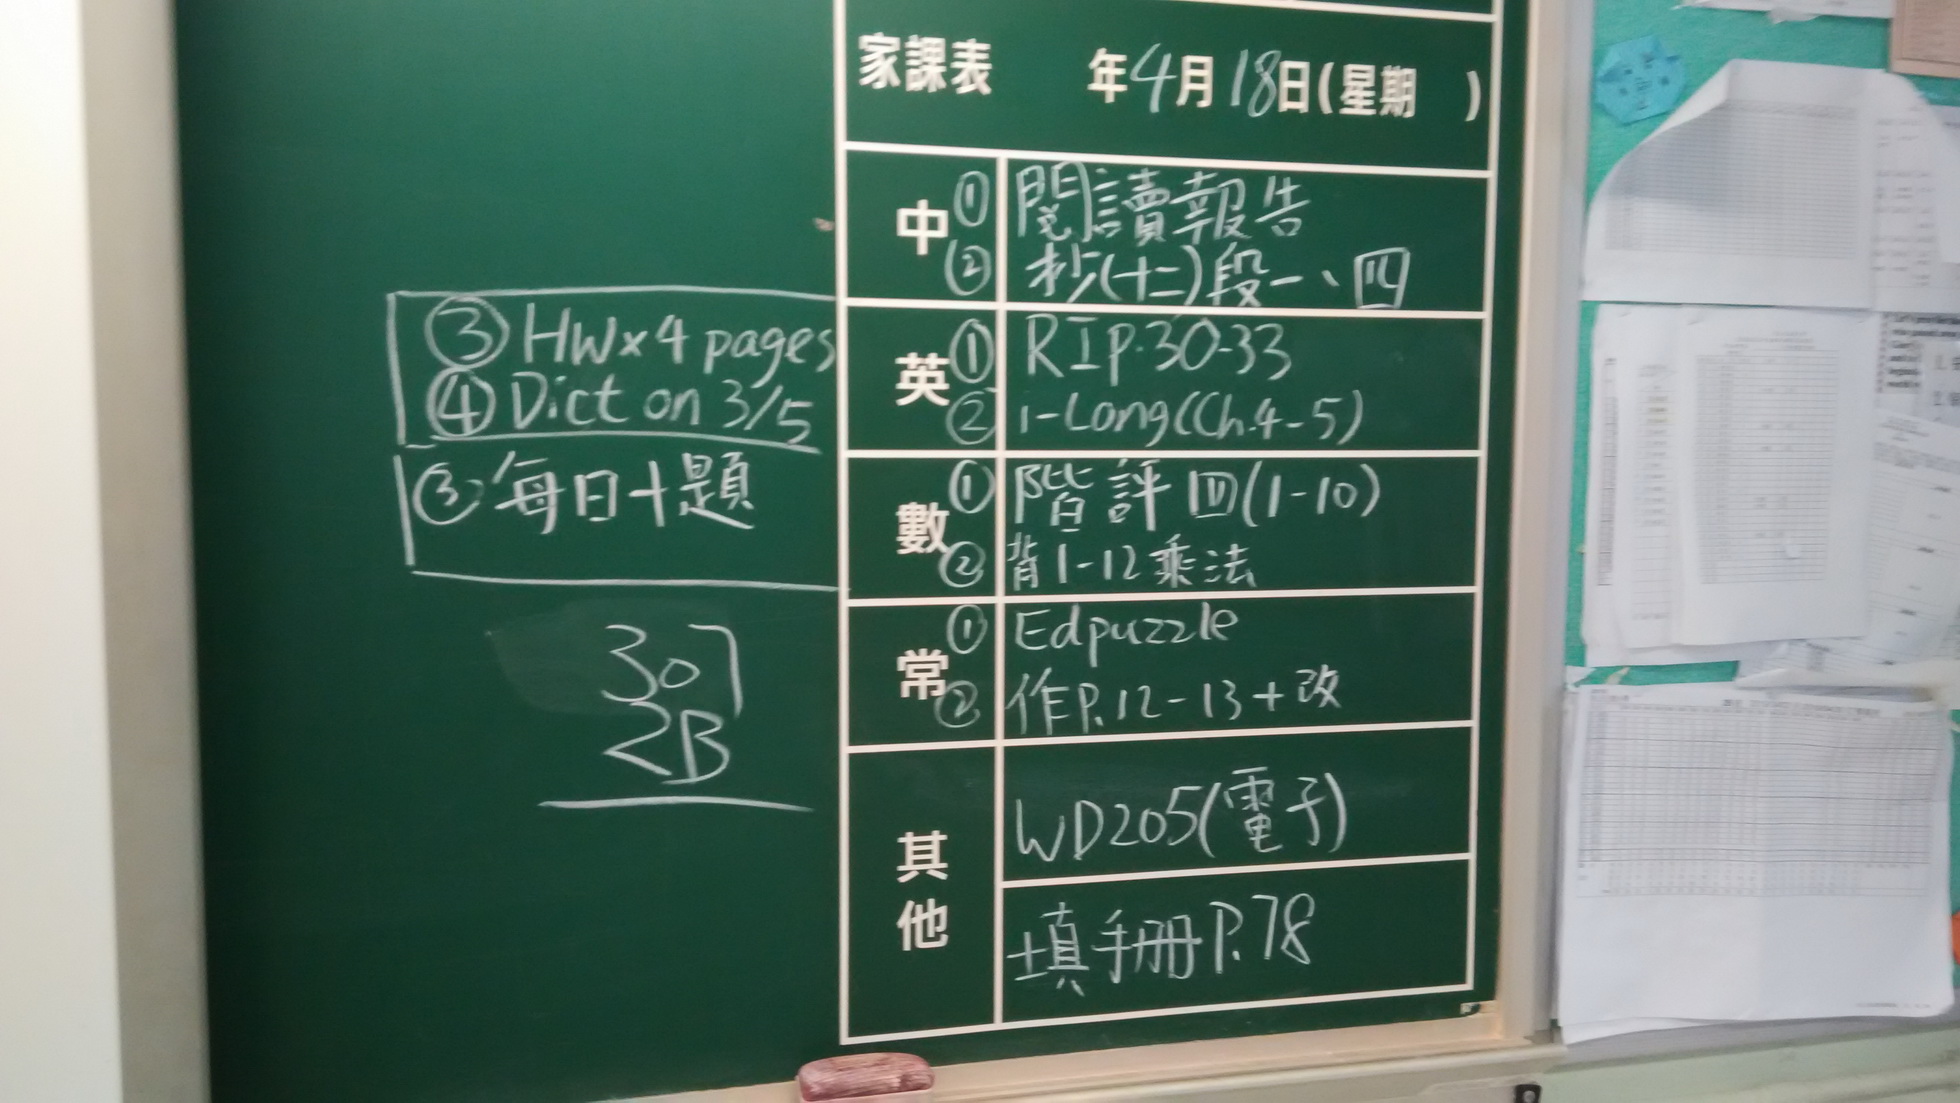 家課表 年4月18日(星期 )
中 ① 閱讀報告
② 抄(十二)段一、四
英 ① RIP.30-33
② i-Long(Ch.4-5)
③ HW×4 pages
④ Dict on 3/5
數 ① 階評四(1-10)
② 背1-12乘法
③ 每日十題
常 ① Edpuzzle
② 作P.12-13+改
其他
WD205(電子)
填手冊P.78
307
2B